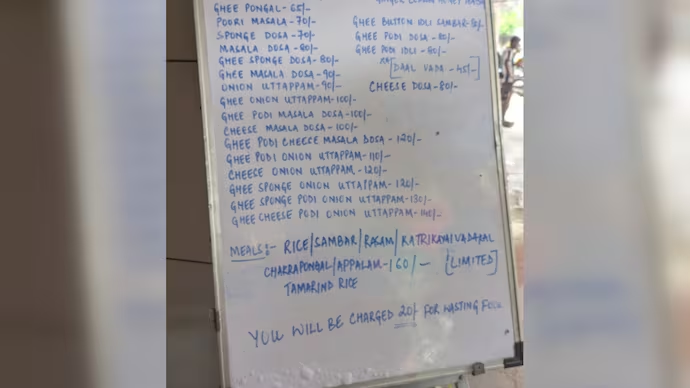 GHEE PONGAL - 65/-
POORI MASALA - 70/-
SPONGE DOSA - 70/-
MASALA DOSA - 80/-
GHEE SPONGE DOSA - 80/-
GHEE MASALA DOSA - 90/-
ONION UTTAPPAM - 90/-
GHEE ONION UTTAPPAM - 100/-
GHEE PODI MASALA DOSA - 100/-
CHEESE MASALA DOSA - 100/-
GHEE PODI CHEESE MASALA DOSA - 120/-
GHEE PODI ONION UTTAPPAM - 110/-
CHEESE ONION UTTAPPAM - 120/-
GHEE SPONGE ONION UTTAPPAM - 120/-
GHEE SPONGE PODI ONION UTTAPPAM - 130/-
GHEE CHEESE PODI ONION UTTAPPAM - 140/-
GHEE BUTTON IDLI SAMBAR -
GHEE PODI DOSA - 80/-
GHEE PODI IDLI - 80/-
[DAAL VADA - 45/-]
CHEESE DOSA - 80/-
MEALS:- RICE/SAMBAR/RASAM/KATRIKAYAIVADAKAL
CHAKRAPONGAL/APPALAM - 160/- [LIMITED]
TAMARIND RICE
YOU WILL BE CHARGED 20/- FOR WASTING FOOD